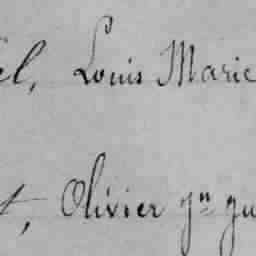 el, Louis Marie
t, Olivier jn gu